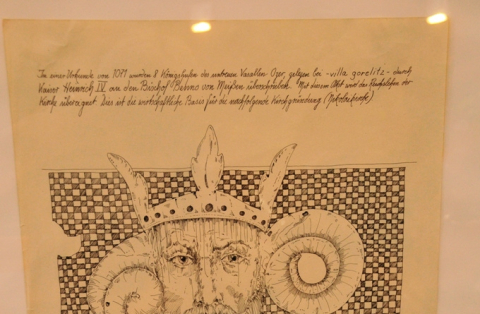 In einer Urkunde von 1071 wurden 8 Königshufen des unfreien Vasallen Ozer, gelegen bei - villa goreliz - durch
Kaiser Heinrich IV. an den Bischof Benno von Meißen überschrieben. Mit diesem Akt wird das Reichslehen der
Kirche übereignet. Dies ist die wirtschaftliche Basis für die nachfolgende Kirchgründung (Nikolaikirche)